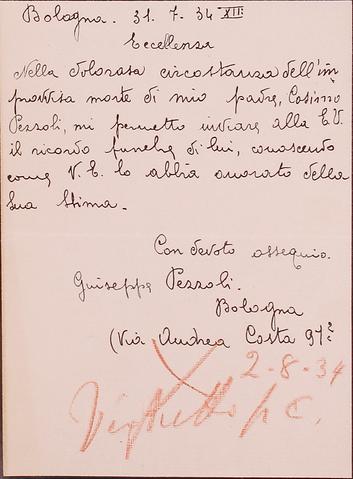 Bologna. 31. 7. 34 XII:
Eccellenza
Nella dolorosa circostanza dell'im
provvisa morte di mio padre, Cosimo
Pezzoli, mi permetto inviare alla E.V.
il ricordo funebre di lui, conoscendo
come V. E. lo abbia onorato della
Sua stima.
Con devoto ossequio.
Guiseppe Pezzoli.
Bologna
(Via Andrea Costa 97²
2-8-34
p. c.